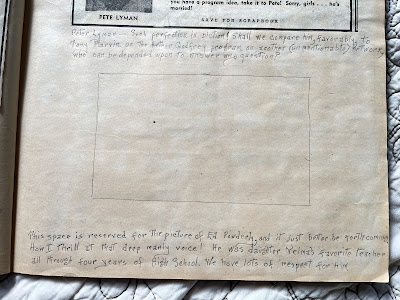 you have a program idea, take it to Pete! Sorry, girls . . . he's
married!
PETE LYMAN
SAVE FOR SCRAPBOOK
Peter Lyman — Such perfection is
Shall we compare him, favorably, to
Tony Marvin on the Arthur Godfrey program, on another (unmentionable) Network,
who can be depended upon to answer any question?
This space is reserved for the picture of Ed and it just better be forthcoming
How I thrill at that deep manly voice! He was daughter Velma's favorite teacher
all through four years of High School. We have lots of respect for him